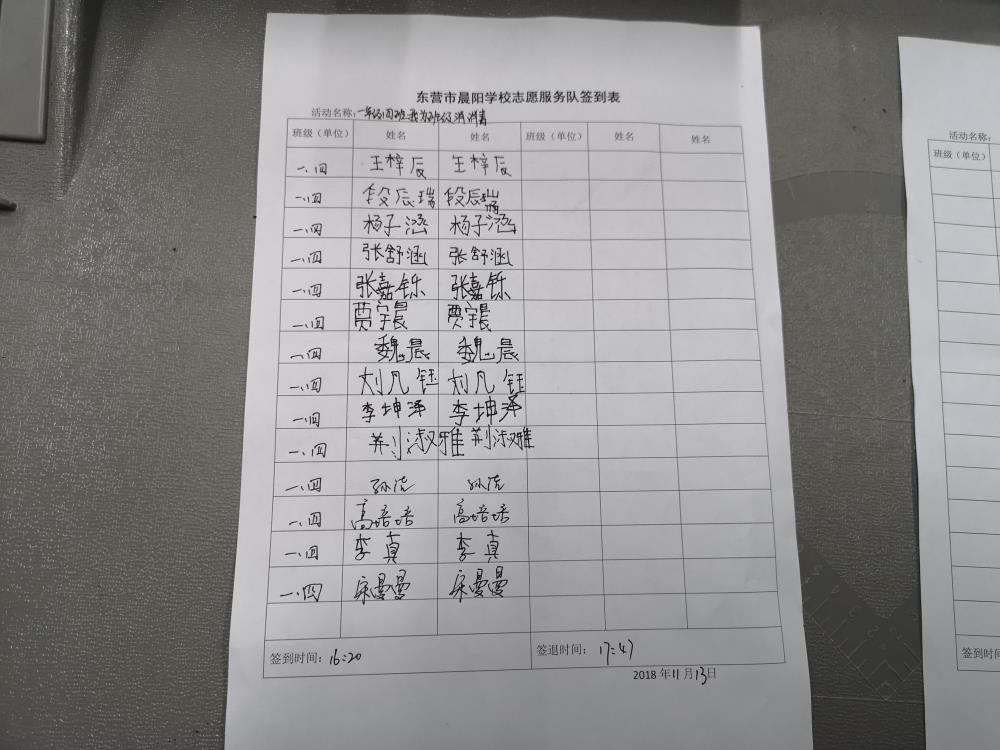 东营市晨阳学校志愿服务队签到表
活动名称：一年级四班我为班级消消毒
班级（单位） 姓名 姓名 班级（单位） 姓名 姓名
一.四 王梓辰 王梓辰
一.四 段辰瑞 段辰瑞
一.四 杨子涵 杨子涵
一.四 张舒涵 张舒涵
一.四 张嘉铄 张嘉铄
一.四 贾宇晨 贾宇晨
一.四 魏晨 魏晨
一.四 刘凡钰 刘凡钰
一.四 李坤泽 李坤泽
一.四 荆淑雅 荆淑雅
一.四 孙洁 孙洁
一.四 高培培 高培培
一.四 李真 李真
一.四 宋曼曼 宋曼曼
签到时间：16:20 签退时间：17:47
2018年11月13日
活动名称：
班级（单位）
签到时间